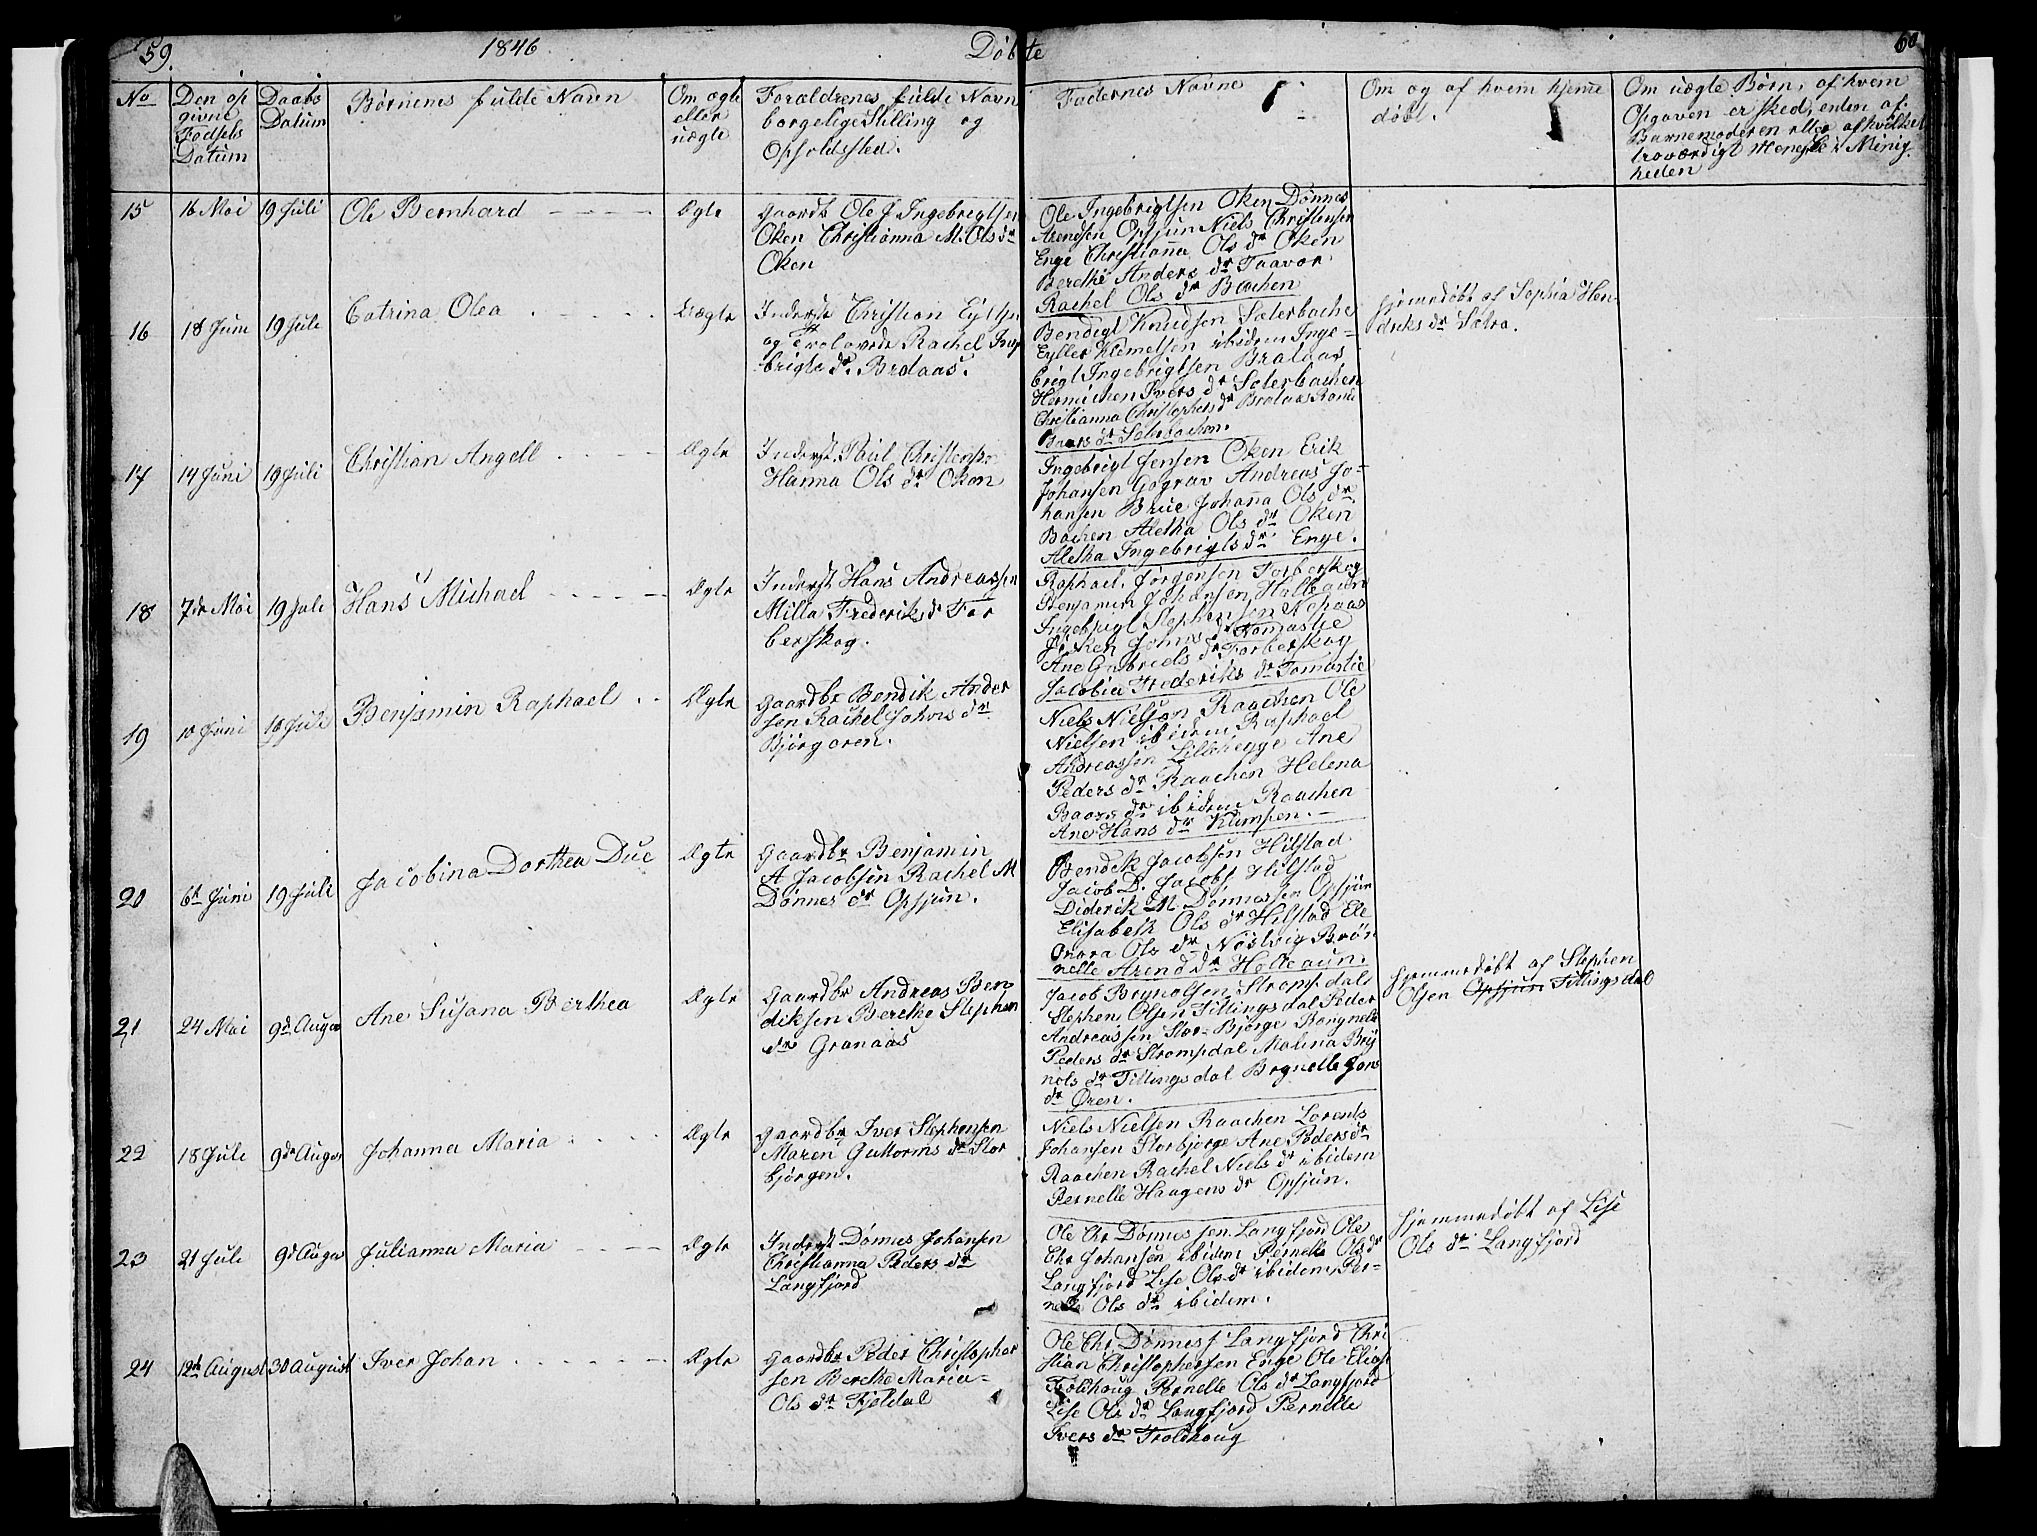 59. 1846 Døbte 60
No Den op Daabs Børnenes fulde Navn Om ægte Forældrenes fulde Navn Faddernes Navne Om og af hvem hjemme Om uægte Børn, af hvem
givne Datum eller borgelige Stilling og døbt. Opgaven er skeed, enten af
Fødsels uægte Opholdssted. Barnemoderen eller af hvilket
Datum troværdigt Menneske i Minig
heden
15 16 Mai 19 Juli Ole Bernhard Ægte Gaardb Ole J Ingebrigtsen
Oken Christianna M. Ols dr
Oken
Ole Ingebrigtsen Oken Dønnes
Arendsen Opsjun Niels Christensen
Enge Christianna Ols dr Oken
Berethe Anders dr Taavær
Rachel Ols dr Bachen
16 18 Juni 19 Juli Catrina Olea Uægte Inderst Christian Eylertsn
og Trolovede Rachel Inge
brigts dr. Brataas.
Bendigt Knudsen Sæterbache
Eyller Klemetsen ibidem Inge-
brigt Ingebrigtsen Brataas
Hermichen Ivers dr Sæterbachen
Christianna Christophers dr Brataas
Baars dr Sæterbachen.
Hjemmedøbt af Sophia Hen-
driks dr Sætra.
17 14 Juni 19 Juli Christian Angell Ægte Inderst Paul Christensen
Hanna Ols dr Oken
Ingebrigt Jensen Oken Erik
Johansen Andreas Jo-
hansen Brue Johanna Ols dr
Bachen Aletha Ols dr Oken
Aletha Ingebrigts dr Enge.
18 7de Mai 19 Juli Hans Michael Ægte Inderst Hans Andreassen
Milla Frederiks dr For
berskog.
Raphael Jørgensen Forberskog
Benjamin Johansen Hølleaun
Ingebrigt Stephensen
Johns dr Tomaslie
Ane Gabriels dr Forberskog
Jacobia Frederiks dr Tomaslie
19 10 Juni 19 Juli Benjamin Raphael Ægte Gaardbr Bendik Ander
sen Rachel Johns dr
Bjørgoren.
Niels Nielsøn Raachen Ole
Nielsen ibidem Raphael
Andreassen Lillehegge Ane
Peders dr Raachen Helena
Baars dr ibidem Raachen
Ane Hans dr Klimpen.
20 6te Juni 19 Juli Jacobina Dorthea Due Ægte Gaardbr Benjamin
A Jacobsen Rachel M
Dønnes dr Opsjun.
Bendik Jacobsen Hilstad
Jacob D. Jacobs Hilstad
Diderik M. Dønnessen Opsjun
Elisabeth Ols dr Hilstad Ele
onora Ols dr Nøstvig Brøn
nelle Arend dr Hølleaun.
21 24 Mai 9de August Ane Susana Berthea Ægte Gaardbr Andreas Ben
diksen Berethe Stephen
dr Granaas
Jacob Brynolsen Strompdal
Stephen Olsen Tillingsdal Peder
Andreassen Stor-Bjørge Rangnele
Peders dr Strompdal Malena Bry
nols dr Tillingsdal Brynelle Jons
dr Øren.
Hjemmedøbt af Stephen
Olsen Opsjun Tillingsdal
22 18 Juli 9de August Johanna Maria Ægte Gaardbr Iver Stephensen
Maren Guttorms dr Stor
bjørgen.
Niels Nielsen Raachen Lorents
Johansen Storbjørge Ane Peders dr
Raachen Rachel Niels dr ibidem
Pernelle Haagens dr Opsjun.
23 21 Juli 9de August Julianna Maria Ægte Inderst Dønnes Johansen
Christianna Peders dr
Langfjord
Ole Chr Dønnessen Langfjord Ole
Chr Johansen ibidem Pernelle Ols dr
Langfjord Lise Ols dr ibidem Per-
nelle Ols dr ibidem.
Hjemmedøbt af Lise
Ols dr Langfjord
24 12te August 30 August Iver Johan Ægte Gaardbr Peder Christopher
sen Berethe Maria
Ols dr Fjeldal
Ole Chr Dønnes Langfjord Chri
stian Christophersen Enge Ole Elias
Troldhoug Pernelle Ols dr Langfjord
Lise Ols dr Langfjord Pernelle
Ivers dr Troldhoug